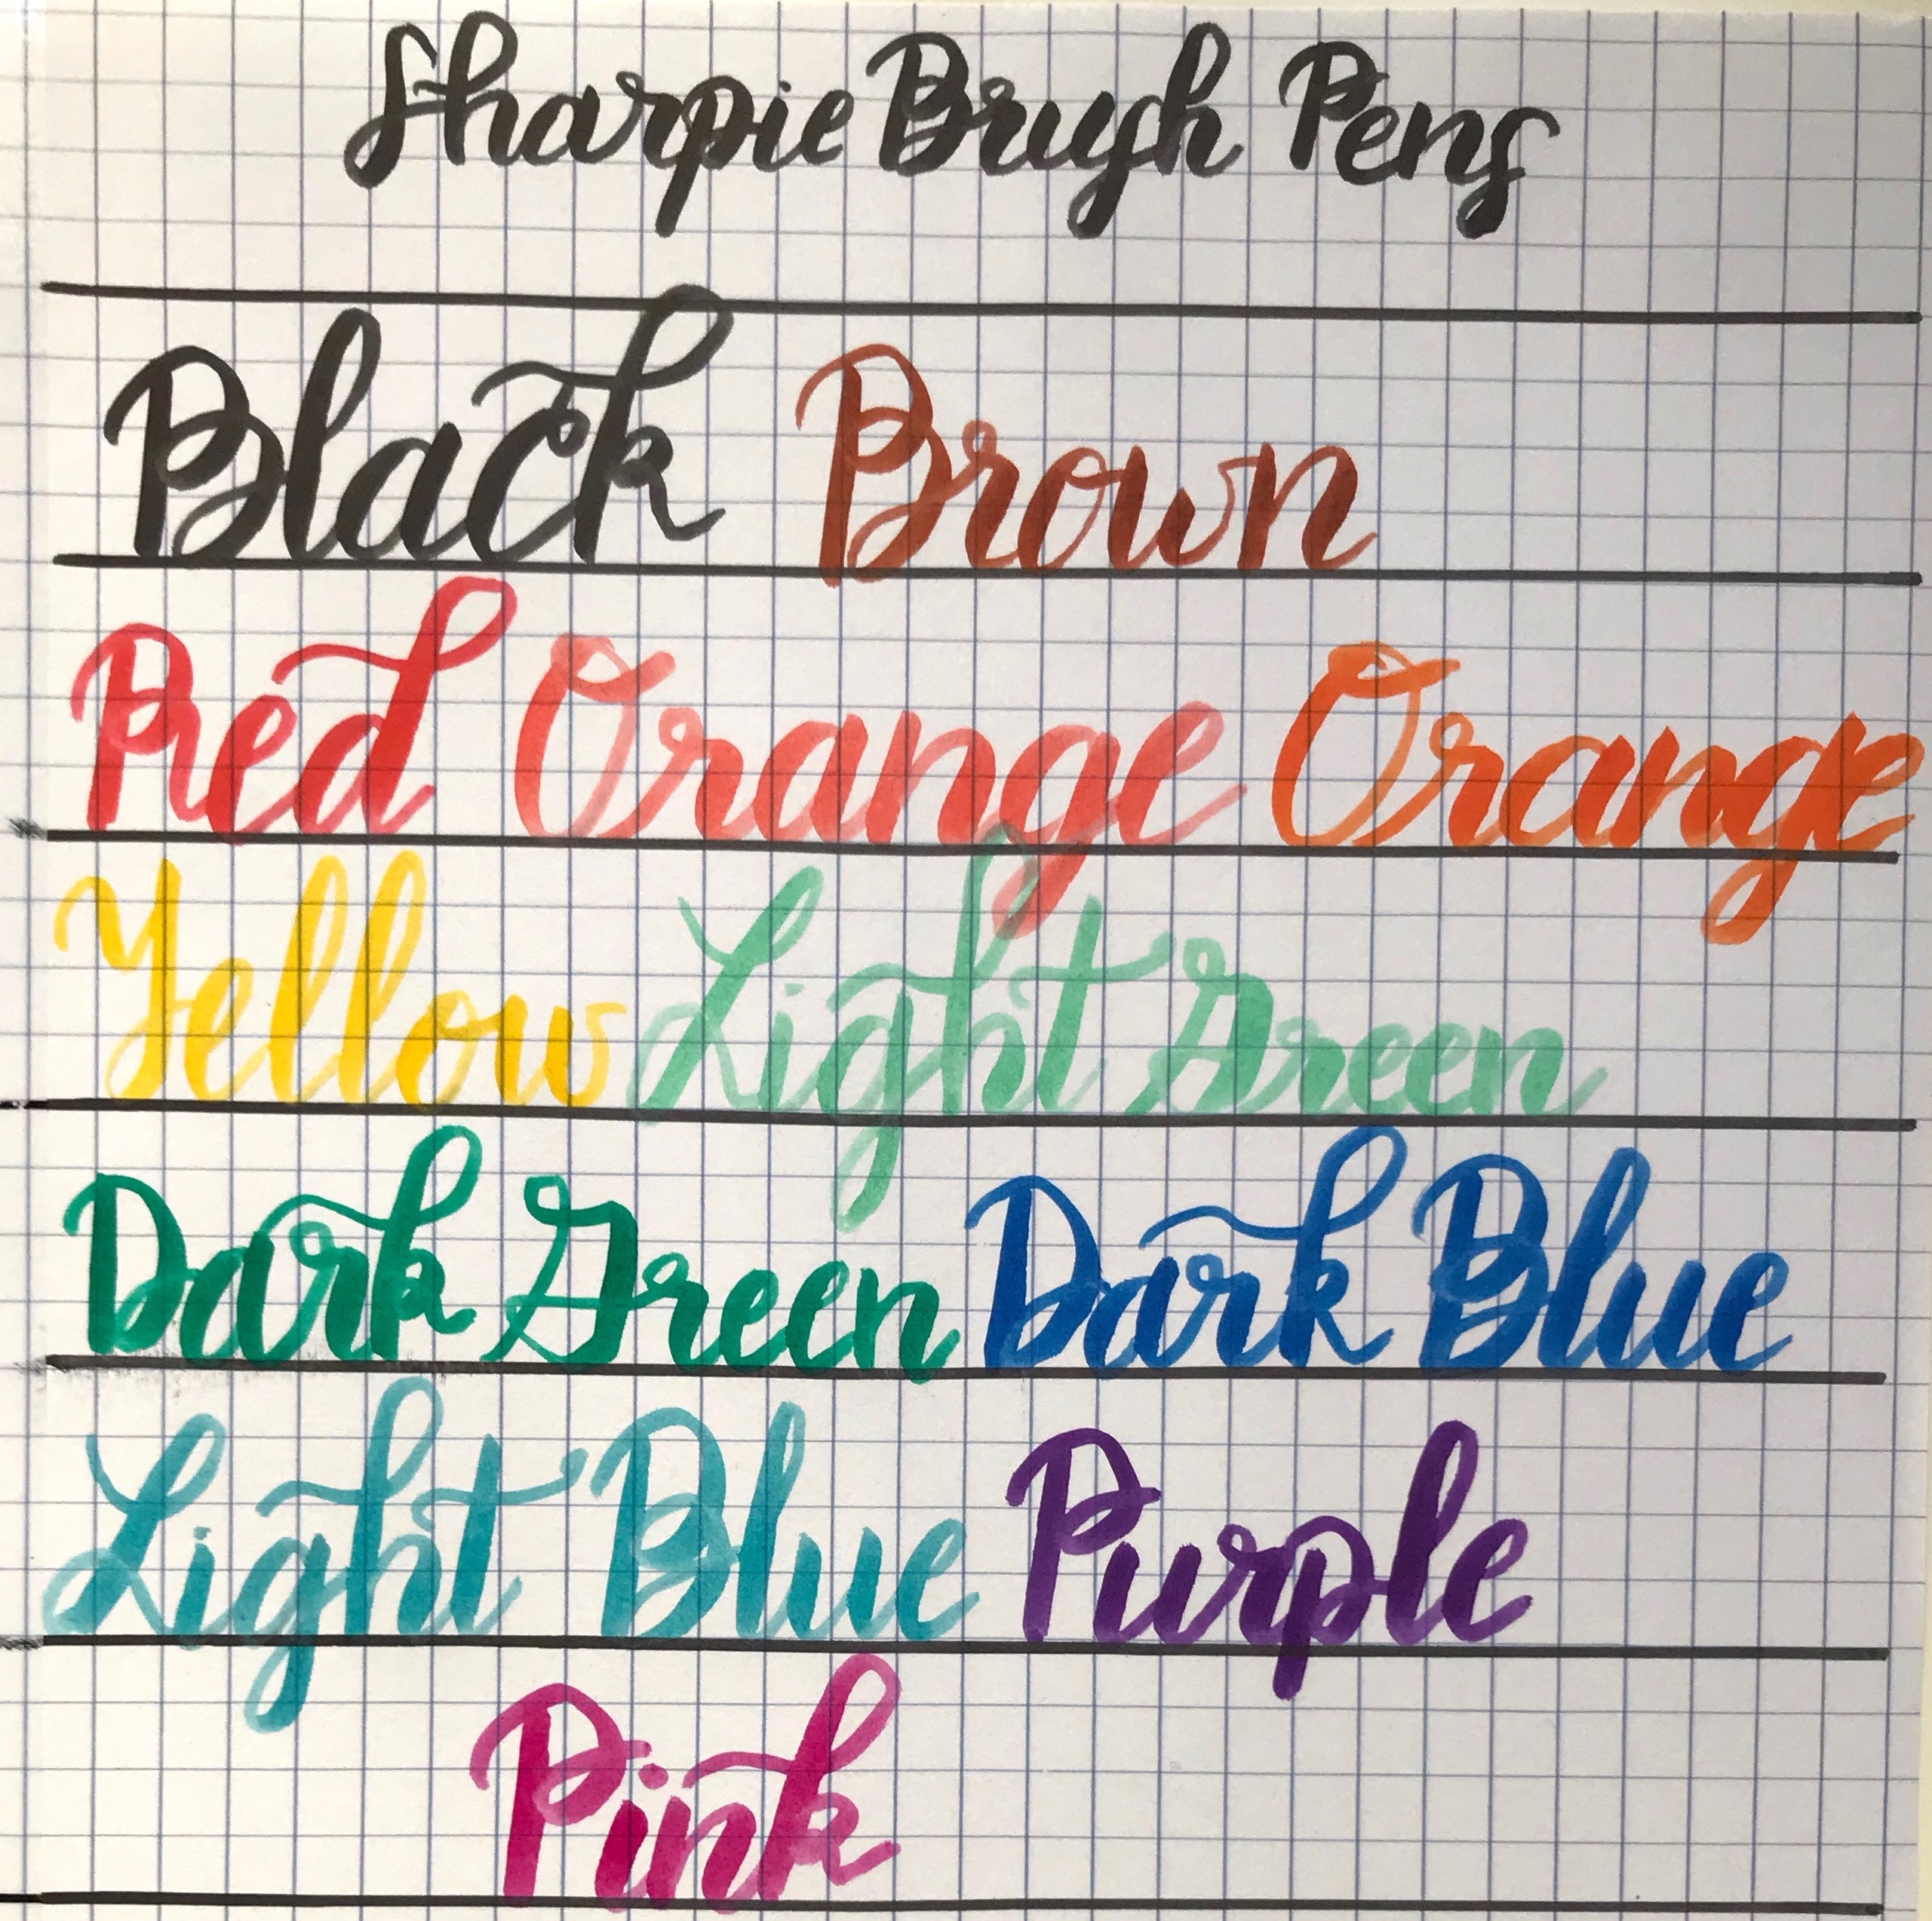 Sharpie Brush Pens
Black Brown
Red Orange Orange
Yellow Light Green
Dark Green Dark Blue
Light Blue Purple
Pink